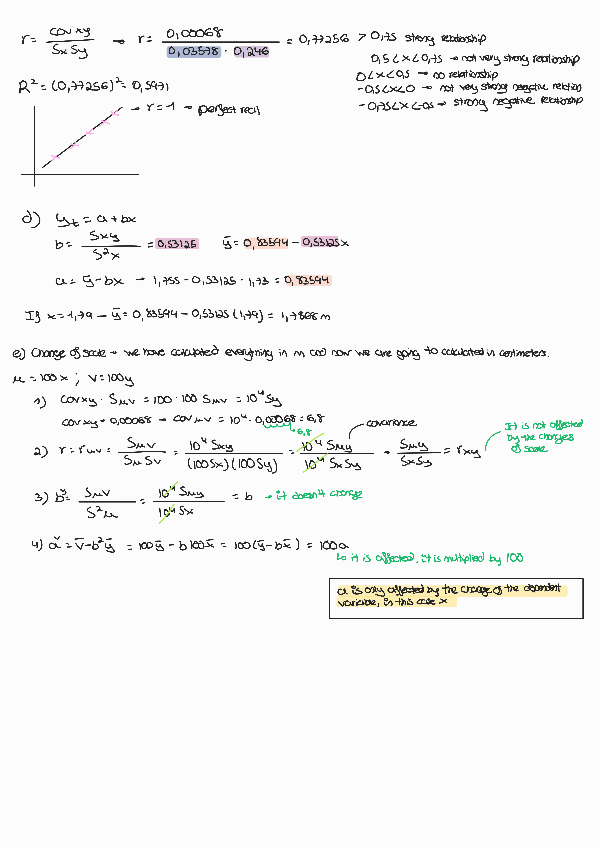 r = cov xy / SxSy → r = 0,00068 / 0,03578 · 0,246 = 0,77256 > 0,75 strong relationship
0,5 < x < 0,75 → not very strong relationship
R² = (0,77256)² = 0,5971
0 < x < 0,5 → no relationship
-0,5 < x < 0 → not very strong negative relation
-0,75 < x < -0,5 → strong negative relationship
→ r = 1 → perfect
d) yt = a + bx
b = Sxy / S²x = 0,53125 ȳ = 0,83594 - 0,53125x
a = ȳ - bx → 1,755 - 0,53125 · 1,73 = 0,83594
If x = 1,79 → ȳ = 0,83594 - 0,53125 (1,79) = 1,7868 m
e) Change of scale → we have calculated everything in m and now we are going to calculated in centimeters.
μ = 100x ; v = 100y
1) cov xy · Sμv = 100 · 100 Sμv = 10⁴ Sy
cov xy = 0,00068 → cov μv = 10⁴ · 0,00068 = 6,8
→ 6,8
covariance
2) r = rμv = Sμv / SμSv = 10⁴ Sxy / (100Sx)(100Sy) = 10⁴ Sμy / 10⁴ SxSy = Sμy / SxSy = rxy
It is not affected
by the changes
of scale
3) b̌ = Sμv / S²μ = 10⁴ Sμy / 10⁴ Sx = b → it doesn't change
4) ǎ = v̄ - b²ȳ = 100ȳ - b100x̄ = 100(ȳ - bx̄) = 100a
↳ it is affected, it is multiplied by 100
a is only affected by the change of the dependent
variable, in this case x